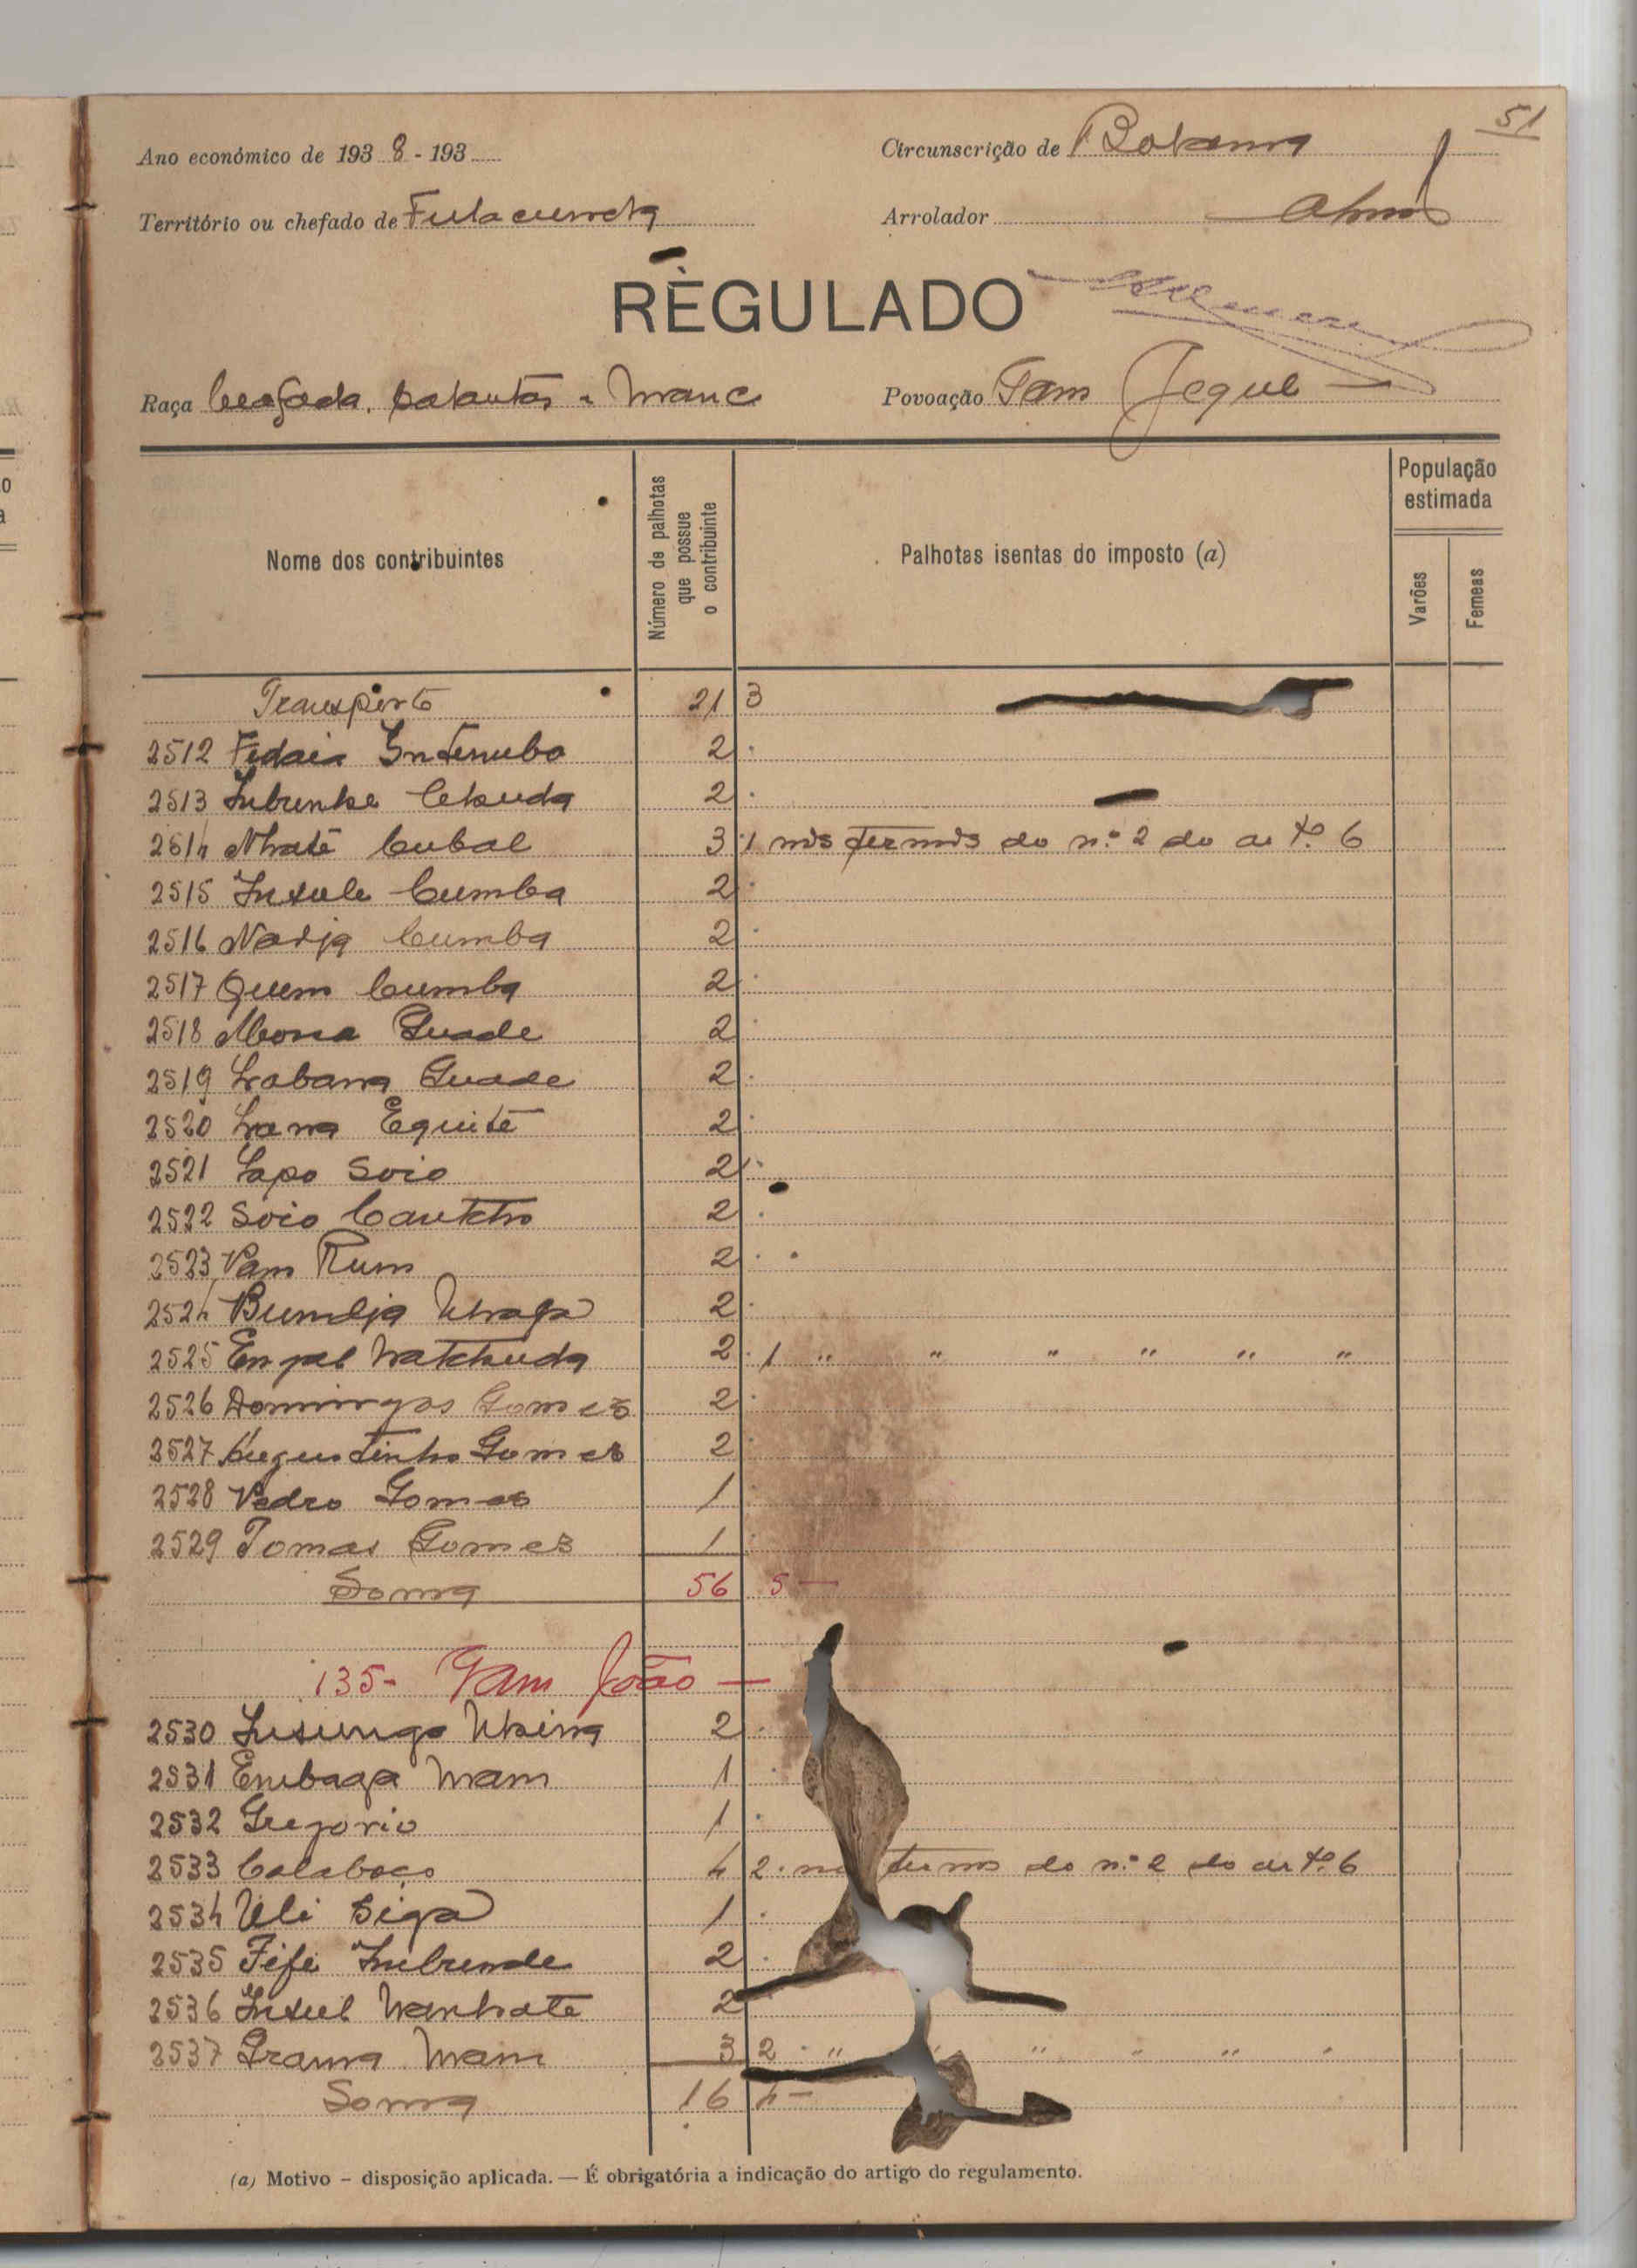 51
Ano económico de 1938-193
Circunscrição de Bolama
Território ou chefado de Fulacunda
Arrolador
REGULADO
Raça beafada, balantas e manc
Povoação Gam Jeque
Nome dos contribuintes
Número de palhotas que possue o contribuinte
Palhotas isentas do imposto (a)
População estimada
Varões
Femeas
Transporte 21 3
2512 Fidais 2
2513 2
2514 Nhaté Cubal 3 1 nos termos do n.º 2 do artº. 6
2515 Insule Cumba 2
2516 Nadja Cumba 2
2517 Quem Cumba 2
2518 Mona Guade 2
2519 Guade 2
2520 Equité 2
2521 Sapo Soio 2
2522 Soio 2
2523 Pam Rum 2
2524 2
2525 2 1 " " " " " "
2526 Domingos Gomes 2
2527 Augustinho Gomes 2
2528 Pedro Gomes 1
2529 Tomas Gomes 1
Soma 56 5-
135- Gam João -
2530 2
2531 Embaga 1
2532 Gregorio 1
2533 Calaboço 4 2 termos do n.º 2 do artº. 6
2534 Uli Siga 1
2535 Fifi 2
2536 Insul 2
2537 3 2 " " " " " "
Soma 16 4-
(a) Motivo – disposição aplicada. — É obrigatória a indicação do artigo do regulamento.